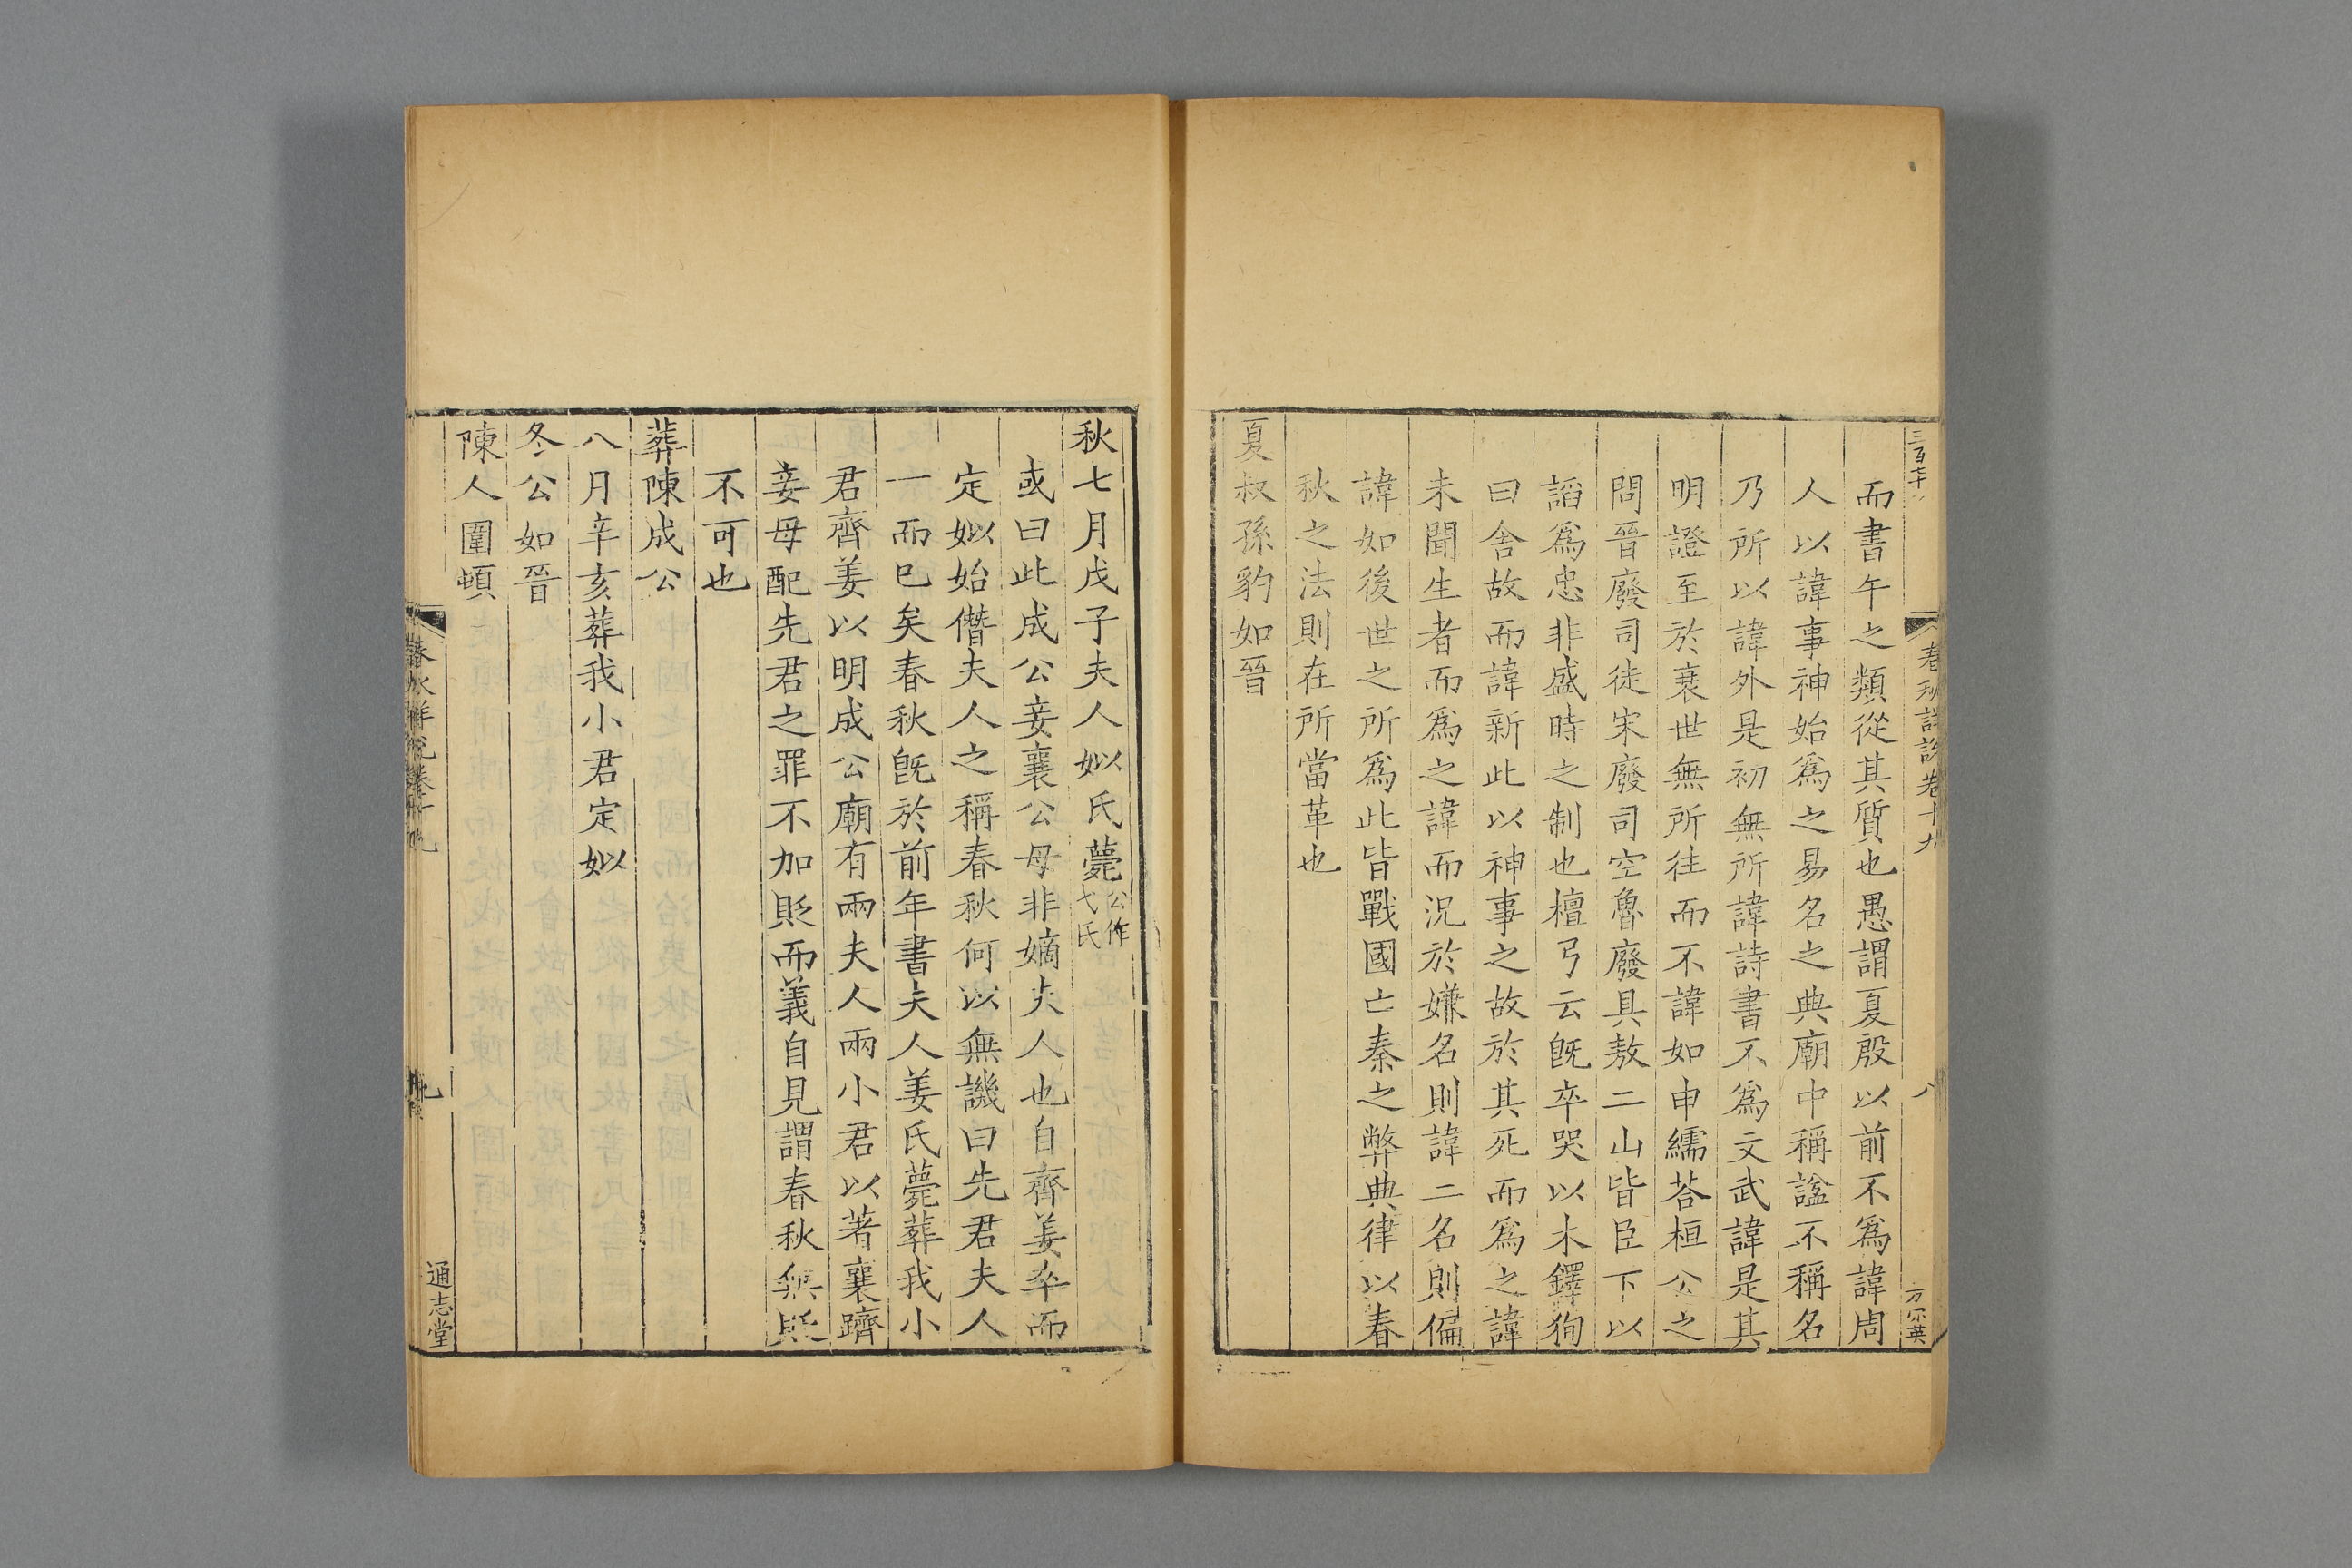 春秋詳說卷十九
八
方宗英
而書午之類從其質也愚謂夏殷以前不為諱周
人以諱事神始為之易名之典廟中稱諡不稱名
乃所以諱外是初無所諱詩書不為文武諱是其
明證至於衰世無所往而不諱如申繻荅桓公之
問晉廢司徒宋廢司空魯廢具敖二山皆臣下以
謟為忠非盛時之制也檀弓云旣卒哭以木鐸狥
曰舍故而諱新此以神事之故於其死而為之諱
未聞生者而為之諱而況於嫌名則諱二名則偏
諱如後世之所為此皆戰國亡秦之弊典律以春
秋之法則在所當革也
夏叔孫豹如晉
秋七月戊子夫人姒氏薨公作弋氏
或曰此成公妾襄公母非嫡夫人也自齊姜卒而
定姒始僭夫人之稱春秋何以無譏曰先君夫人
一而巳矣春秋旣於前年書夫人姜氏薨葬我小
君齊姜以明成公廟有兩夫人兩小君以著襄躋
妾母配先君之罪不加貶而義自見謂春秋無貶
不可也
葬陳成公
八月辛亥葬我小君定姒
冬公如晉
陳人圍頓
春秋詳說卷十九
九
通志堂